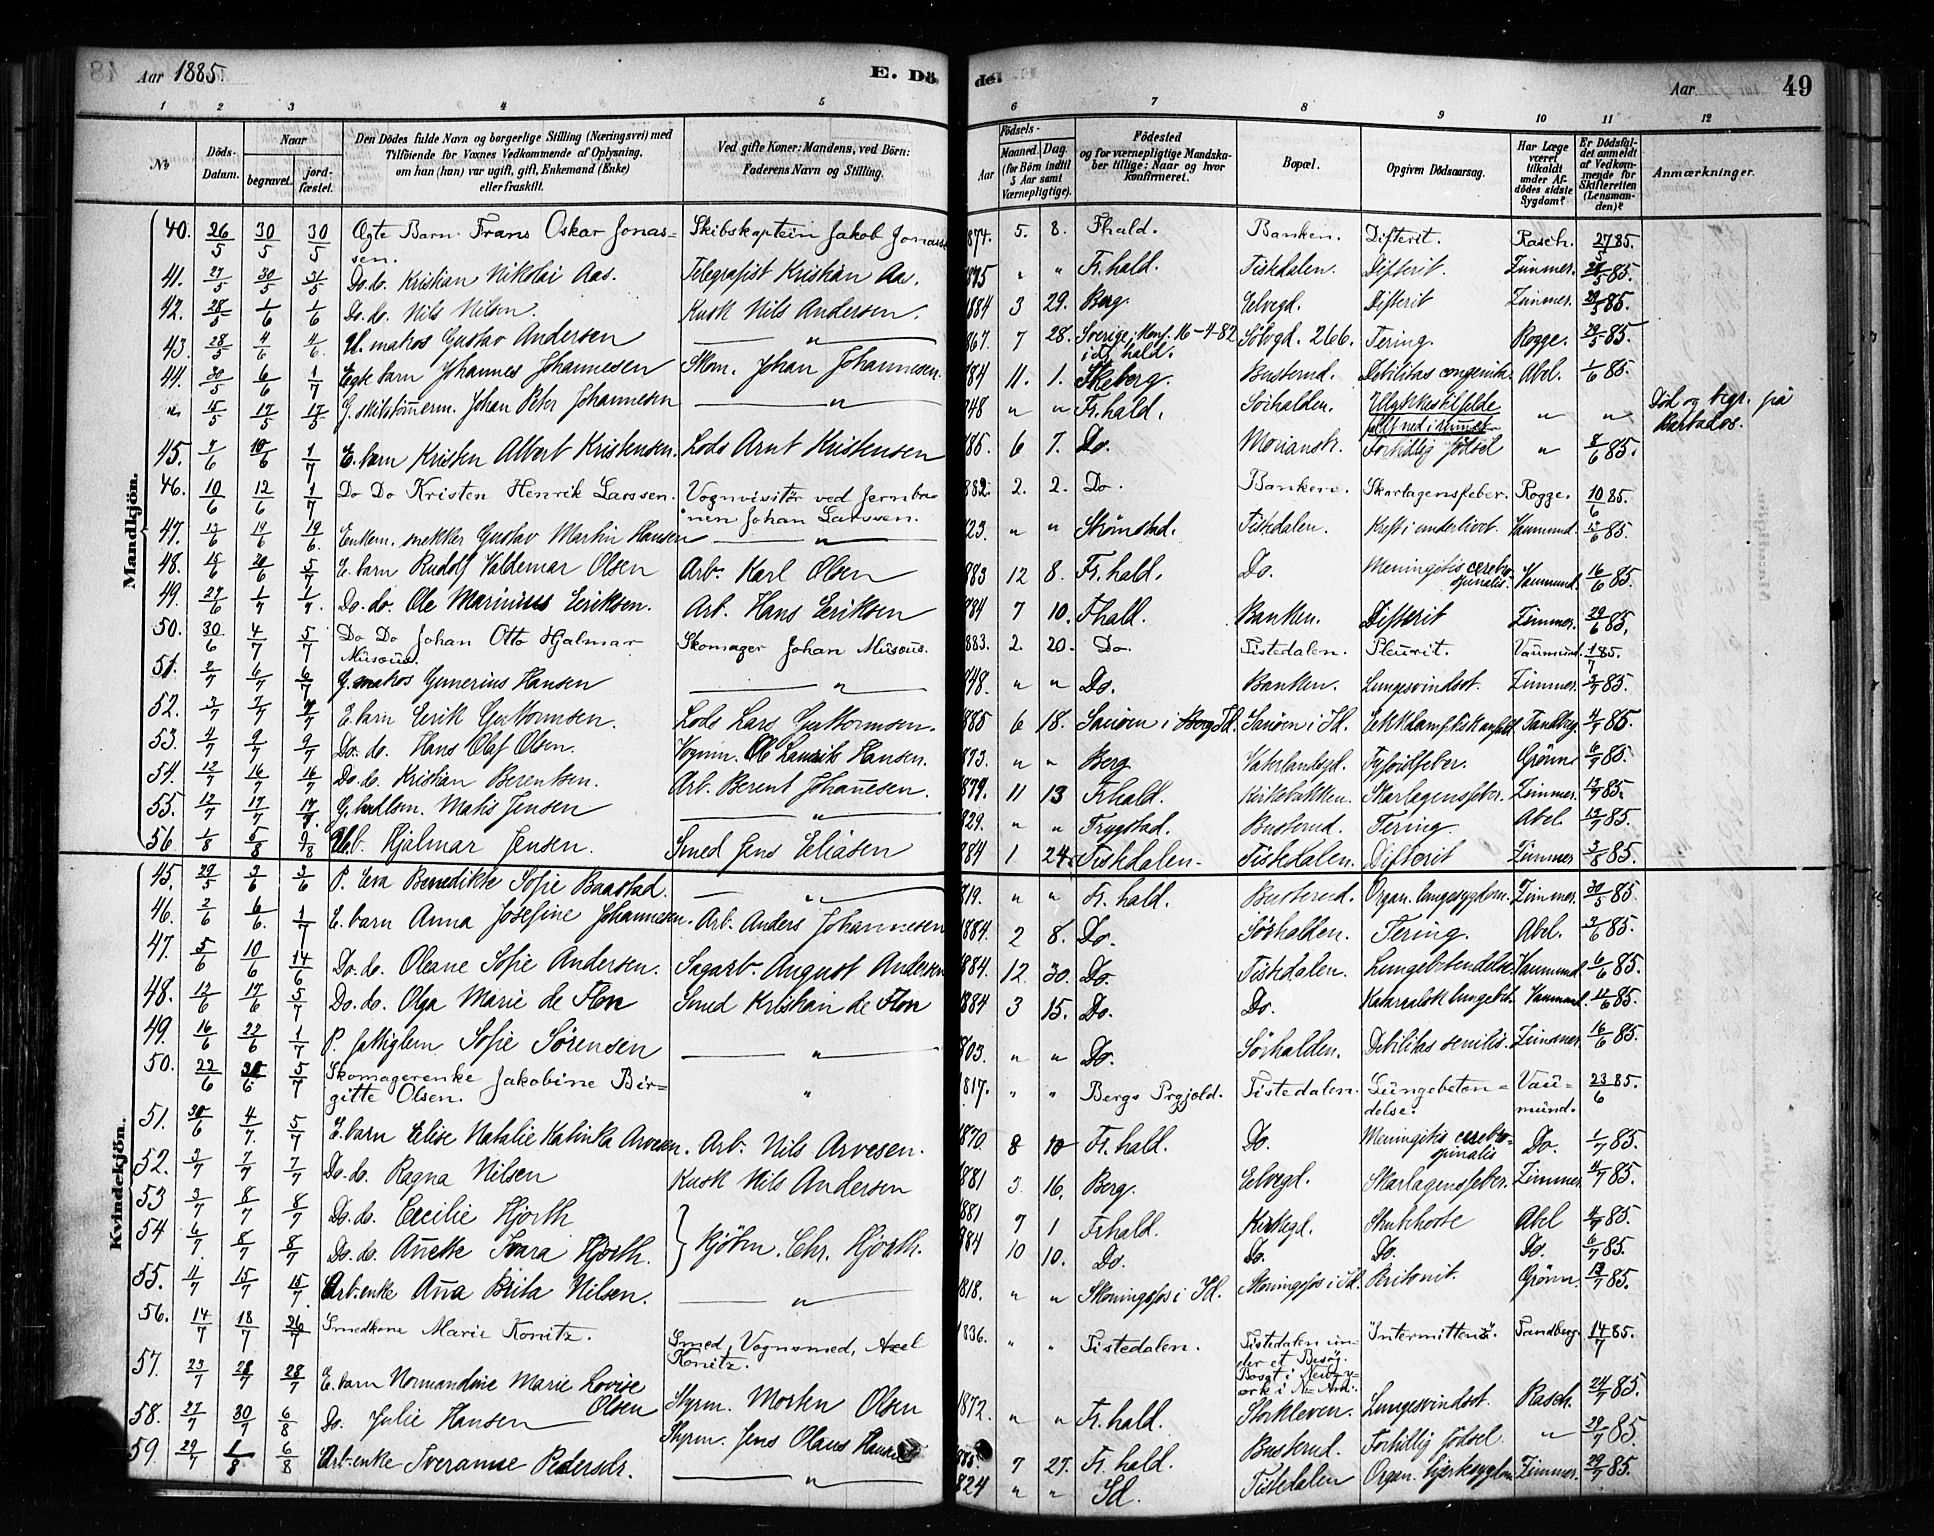 Aar 1885. E. Dö de. Aar 49
1 2 3 4 5 6 7 8 9 10 11 12
No Döds-Datum. Naar begravet. jord-fæstet. Den Dödes fulde Navn og borgerlige Stilling (Næringsvei) med Tilföiende for Voxnes Vedkommende af Oplysning, om han (hun) var ugift, gift, Enkemand (Enke) eller fraskilt. Ved gifte Koner: Mandens, ved Börn: Faderens Navn og Stilling. Födsels- Aar Maaned. Dag. (for Börn indtil 5 Aar samt Værnepligtige). Födested og for værnepligtige Mandskaber tillige: Naar og hvor konfirmeret. Bopæl. Opgiven Dödsaarsag. Har Læge været tilkaldt under Afdödes sidste Sygdom? Er Dödsfaldet anmeldt af Vedkommende for Skifteretten (Lensmanden)? Anmærkninger.
Mandkjön.
40. 26/5 30/5 30/5 Ægte Barn Frans Oskar Jonas-sen. Skibskaptein Jakob Jonassen 1874. 5. 8. Fhald. Banken. Difterit. Rasch. 27/5 85.
41. 27/5 30/5 31/5 Do. do. Kristian Nikolai Aas. Telegrafist Kristian Aas. 1875 " " Fr. hald. Tistedalen. Difterit. Zimmer. 28/5 85.
42. 28/5 1/6 1/6 Do. do. Nils Nilsen. Kusk Nils Andersen. 1884 3 29. Berg. Elvegd. Difterit Zimmer. 29/5 85.
43. 28/5 4/6 4/6. U. matros Gustav Andersen " 1867. 7 28. Sverige; Konf. 16-4-82 i Fr. hald. Sölvgd. 266. Tering. Rogge. 29/5 85.
44. 30/5 6/6 1/7 Egte barn Johannes Johannesen Skom. Johan Johannesen. 1884 11. 1. Skeberg. Busterud. Debilitas congenita Abel. 1/6 85.
" 15/5 17/5 17/5 G. skibstömerm. Johan Peter Johannesen " 1848 " " Fr. hald. Sörhalden. Ulykkestilfelde faldt ned i rummet " " Död og begr. på Barbados.
45. 7/6 10/6 1/7 E. barn Kristen Albert Kristensen. Lods Arnt Kristensen 1885. 6 7. Do. Forhillig födsel " 8/6 85.
46. 10/6 12/6 1/7 Do Do Kristen Henrik Larssen. Vognvisitör ved Jernba-nen Johan Larssen. 1882. 2. 2. Do. Banken. Skarlagensfeber. Rogge. 10/6 85.
47. 12/6 19/6 19/6. Enkem. snekker Gustav Martin Hansen " 1823. " " Strömstad. Tistedalen. Kræft i underlivet. Vaumund. 13/6 85.
48. 15/6 20/6 5/7 E. barn Rudolf Valdemar Olsen Arb. Karl Olsen 1883 12 8. Fr. hald. Do. Meningitis cerebro spinalis. Vaumund. 16/6 85.
49. 27/6 1/7 1/7. Do. do. Ole Marinius Eriksen. Arb. Hans Eriksen 1884 7 10. Fhald. Banken. Difterit Zimmer. 29/6 85.
50. 30/6 4/7 5/7 Do Do Johan Otto Hjalmar Musæus. Skomager Johan Musæus. 1883. 2. 20. Do. Tistedalen. Pleurit. Vaumund. 1/7 85.
51. 2/7 6/7 6/7 G. matros Gunerius Hansen " 1848. " " Do. Banken. Lungesvindsot. Zimmer. 3/7 85.
52. 3/7 7/7 7/7 E. barn Erik Guttormsen. Lods Lars Guttormsen. 1885 6 18. Sanöen i Id. Sanöen i Id. Tandberg. 4/7 85.
53. 4/7 9/7 9/7 Do. do. Hans Olaf Olsen. Vognm. Ole Lauritz Hansen. 1873. " " Berg. Vaterlandsgd. Tyfoidfeber. Grönn 6/7 85.
54. 12/7 16/7 16/7 Do. do. Kristian Berentsen. Arb. Berent Johannesen. 1879. 11 13 Frhald. Kirkebakken. Skarlagensfeber. Zimmer. 13/7 85.
55. 12/7 17/7 17/7. G. Matis Jensen " 1829. " " Trygstad. Busterud. Tering. Abel. 13/7 85.
56 1/8 5/8 9/8 U. b. Hjalmar Jensen. Smed Jens Eliasen 1884 1 24. Tistedalen. Tistedalen. Difterit Zimmer 3/8 85.
Kvindekjön.
45. 29/5 3/6 3/6 P. Eva Benedikte Sofie Baastad. " 1819. " " Fr. hald. Busterud. Organ. lungesygdom. Zimmer. 30/5 85.
46. 2/6 6/6. 1/7 E. barn Anna Josefine Johannesen. Arb. Anders Johannesen 1884. 2 8. Do. Sörhalden. Tering. Abel. 3/6 85.
47. 5/6 10/6 14/6 Do. do. Oleane Sofie Andersen. Sagarb. August Andersen 1884. 12 30. Do. Tistedalen. Lungebetendelse Vaumund. 6/6 85.
48. 12/6 17/6 5/7 Do. do. Olga Marie de Flon Smed Kristian de Flon 1884 3 15. Do. Do. Katarralsk lungebet. Vaumund. 12/6 85.
49. 16/6 22/6 1/7 P. fattiglem Sofie Sörensen " 1803. " " Do. Sörhalden. Debilitas senilis. Zimmer. 16/6 85.
50. 22/6 /6 5/7 Skomagerenke Jakobine Bir-gitte Olsen. " 1817. " " Bergs Prgjeld. Tistedalen. Lungebeten-delse. Vau-mund. 23/6 85.
51. 30/6 4/7. 5/7 E. barn Elise Natalie Katinka Arvesen. Arb. Nils Arvesen. 1870 8 10 Fr. hald. Do. Meningitis cerebro-spinalis Do. 1/7 85.
52. 3/7 7/7 7/7 Do. do. Ragna Nilsen Kusk Nils Andersen 1881 3 16. Berg. Elvegd. Skarlagensfeber. Zimmer 4/7 85.
53 3/7 8/7 8/7 Do. do. Cecilie Hjorth } Kjöbm. Chr. Hjorth. 1881 7 1 Frhald. Kirkegd. Strubehoste Abel 4/7 85.
54 6/7 8/7 8/7 Do. do. Anette Ivara Hjorth. 1884 10 10. Do. Do. Do. Do. 6/7 85.
55. 11/7 15/7 15/7. Arb. enke Anna Brita Nilsen. " 1818. " " Skoningsfos i Id. Skoningsfos i Id. Peritonit. Grönn 13/7 85.
56. 14/7 18/7 26/7 Smedkone Marie Konitz. Smed, Vognsmed, Axel Konitz. 1836. " " Tistedalen. Tistedalen un-der et Besög. Bosat i Newy-ork i N. Am. "Intermittens". Tandberg 14/7 85.
57. 23/7 28/7 28/7 E. barn Normandine Marie Lovise Olsen Styrm. Morten Olsen 1872. " " Fr. hald. Storkleven. Lungesvindsot. Rasch. 24/7 85.
58. 27/7 30/7 6/8 Do. Julie Hansen Styrm. Jens Olaus Hansen 1885. 7 27. Fr. hald. Busterud. Forhillig födsel. " 29/7 85.
59. 29/7 1/8 6/8 Arb. enke Iveranne Pedersdr. " 1824 " " Id. Tistedalen Organ. hjertesygdom Zimmer. 29/7 85.